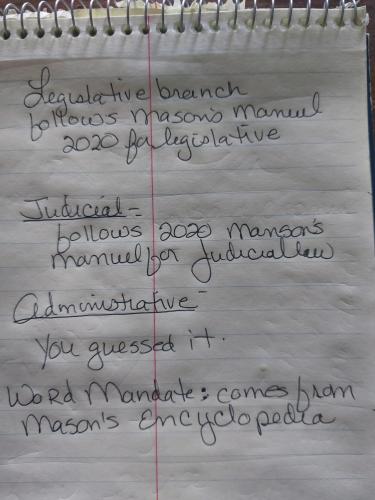 Legislative branch
follows mason's manuel
2020 for legislative
Judicial -
follows 2020 manson's
manuel for Judicial law
Administrative -
You guessed it.
Word Mandate: comes from
Mason's Encyclopedia